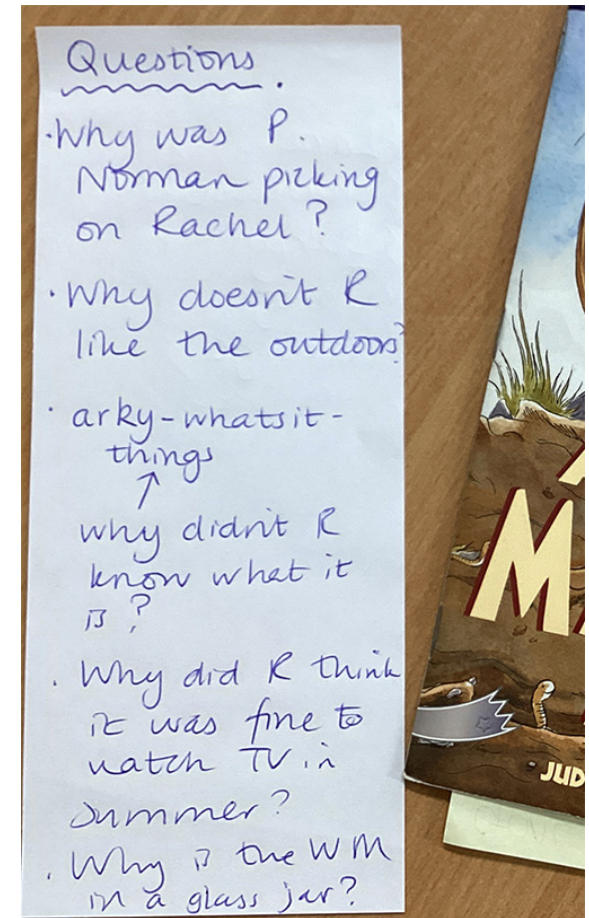 Questions.
·Why was P.
Norman picking
on Rachel?
·Why doesn't R
like the outdoors?
· arky-whatsit-
things
↑
why didn't R
know what it
is?
. Why did R think
it was fine to
watch TV in
summer?
. Why is the WM
in a glass jar?
M
JUD